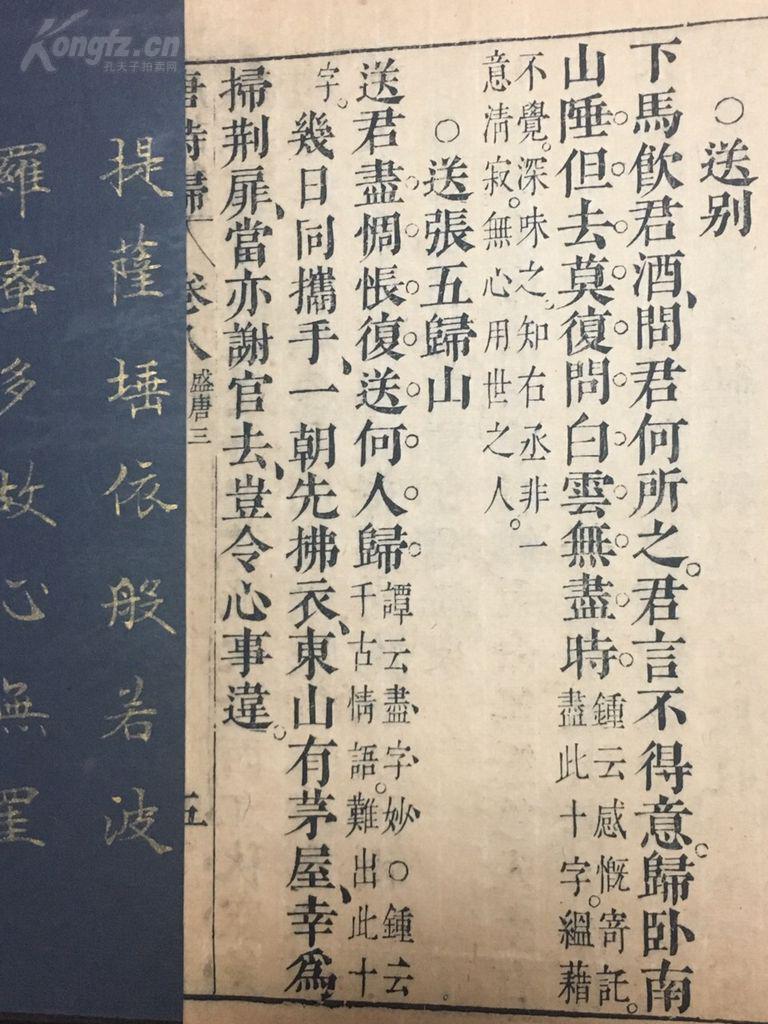 ○送別
下馬飲君酒、問君何所之。君言不得意。歸卧南
山陲但去莫復問白雲無盡時鍾云感慨寄託。盡此十字。縕藉
不覺。深味之、知右丞非一意清寂。無心用世之人。
○送張五歸山
送君盡惆悵復送何人歸譚云盡字妙○鍾云千古情語。難出此十
字。幾日同攜手、一朝先拂衣、東山有茅屋、幸爲
掃荆扉、當亦謝官去、豈令心事違。
唐詩歸 卷八 盛唐三 五
提薩埵依般若波
羅蜜多故心無罣
Kongfz.cn
孔夫子拍卖网